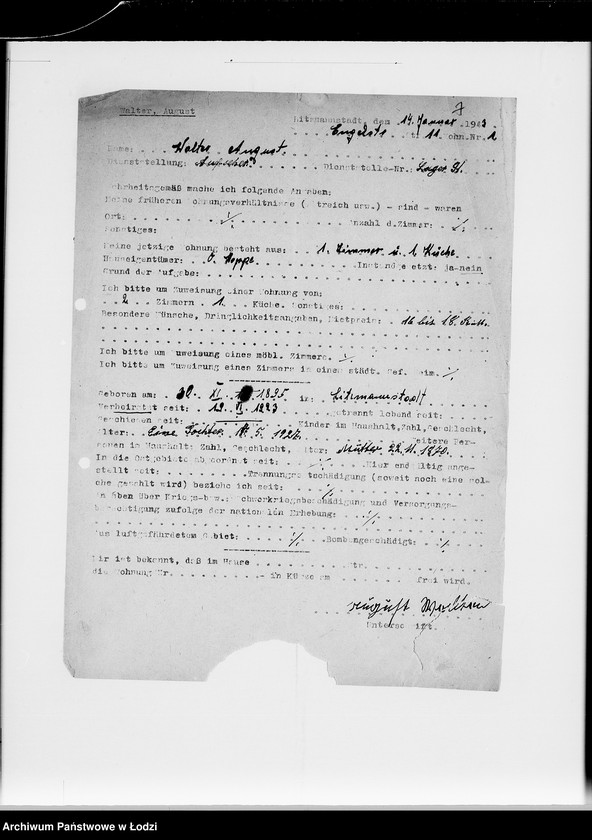 Walter, August
Litzmannstadt, den 14. Januar 1943
7
Engelstr. 11 Wohn.Nr. 1
Name: Walter August.
Dienststellung: Aufseher Dienststelle-Nr.:
Wahrheitsgemäß mache ich folgende Angaben:
Meine früheren Wohnungsverhältnisse (Altreich usw.) - sind - waren
Ort: ./. Anzahl d.Zimmer: ./.
Sonstiges:
Meine jetzige Wohnung besteht aus: 1. Zimmer u. 1. Küche
Hauseigentümer: O. Hoppe. Instandgesetzt: ja-nein
Grund der Aufgabe:
Ich bitte um Zuweisung einer Wohnung von:
2 Zimmern 1. Küche. Sonstiges:
Besondere Wünsche, Dringlichkeitsangaben, Mietpreis: 16 bis 18
Ich bitte um Zuweisung eines möbl. Zimmers. ./.
Ich bitte um Zuweisung eines Zimmers in einem städt. Gef. Heim. ./.
Geboren am: 30. XI 1895 in: Litzmannstadt
Verheiratet seit: 19. VI. 1923 getrennt lebend seit:
Geschieden seit: Kinder im Haushalt, Zahl, Geschlecht,
Alter: Eine Tochter 5. 1927. Weitere Per-
sonen im Haushalt: Zahl, Geschlecht, Alter: Mutter 22.11.1870.
In die Ostgebiete abgeordnet seit: ./. Hier endgültig ange-
stellt seit: Trennungsentschädigung (soweit noch eine sol-
che gezahlt wird) beziehe ich seit: ./.
Angaben über Kriegs-bzw.: Schwerkriegsbeschädigung und Versorgungs-
berechtigung zufolge der nationalen Erhebung: ./.
Aus luftgefährdetem Gebiet: ./. Bombengeschädigt: ./.
Mir ist bekannt, daß im Hause Str.
die Wohnung Nr. - in Kürze am frei wird.
August Walter
Unterschrift.
Archiwum Państwowe w Łodzi